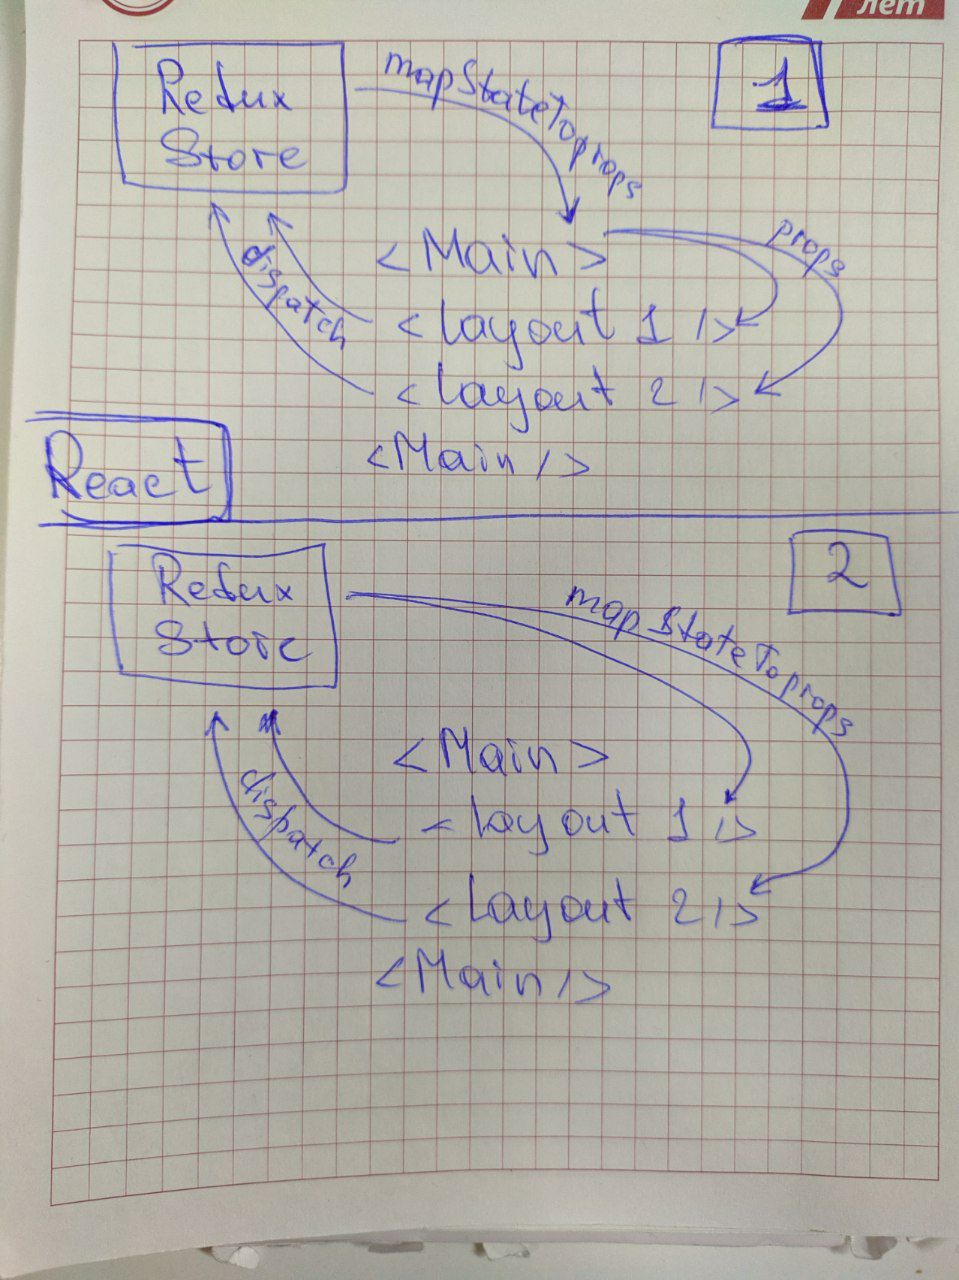 лет
1
Redux
Store
mapStateToprops
<Main>
props
dispatch
<layout 1 />
<layout 2 />
<Main/>
React
2
Redux
Store
mapStateToprops
<Main>
dispatch
<layout 1 />
<layout 2 />
<Main/>